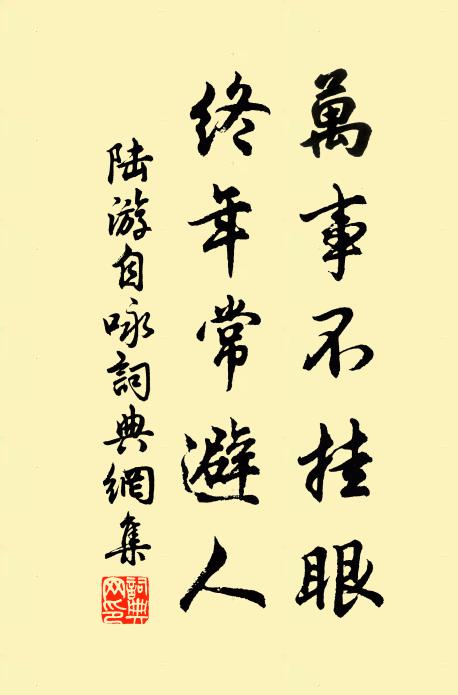 萬事不挂眼
終年常避人
陸游自咏詞典網集
詞典網印